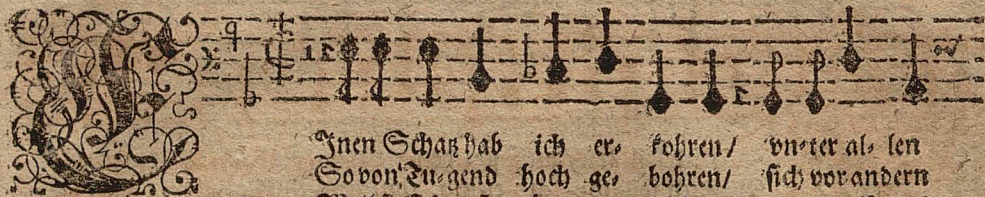 EInen Schatz hab ich er- kohren/ vn-ter al- len
So von Tu-gend hoch ge- bohren/ sich vor andern